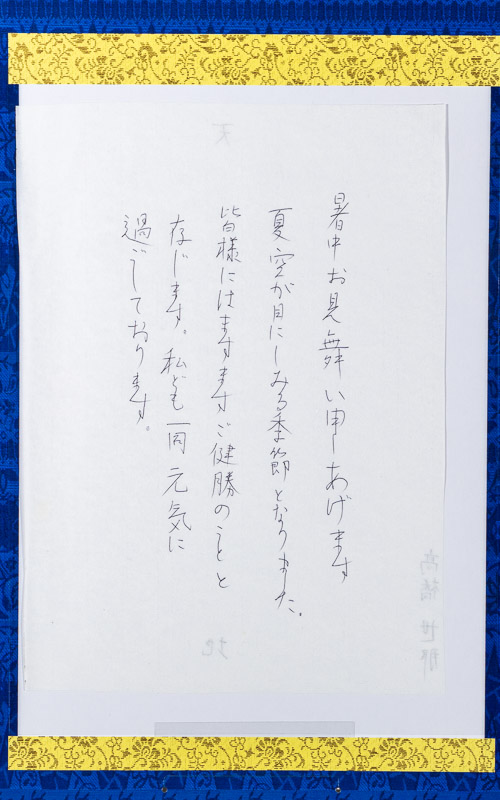 暑中お見舞い申しあげます
夏空が目にしみる季節となりました。
皆様にはますますご健勝のことと
存じます。私ども一同元気に
過ごしております。
天
地